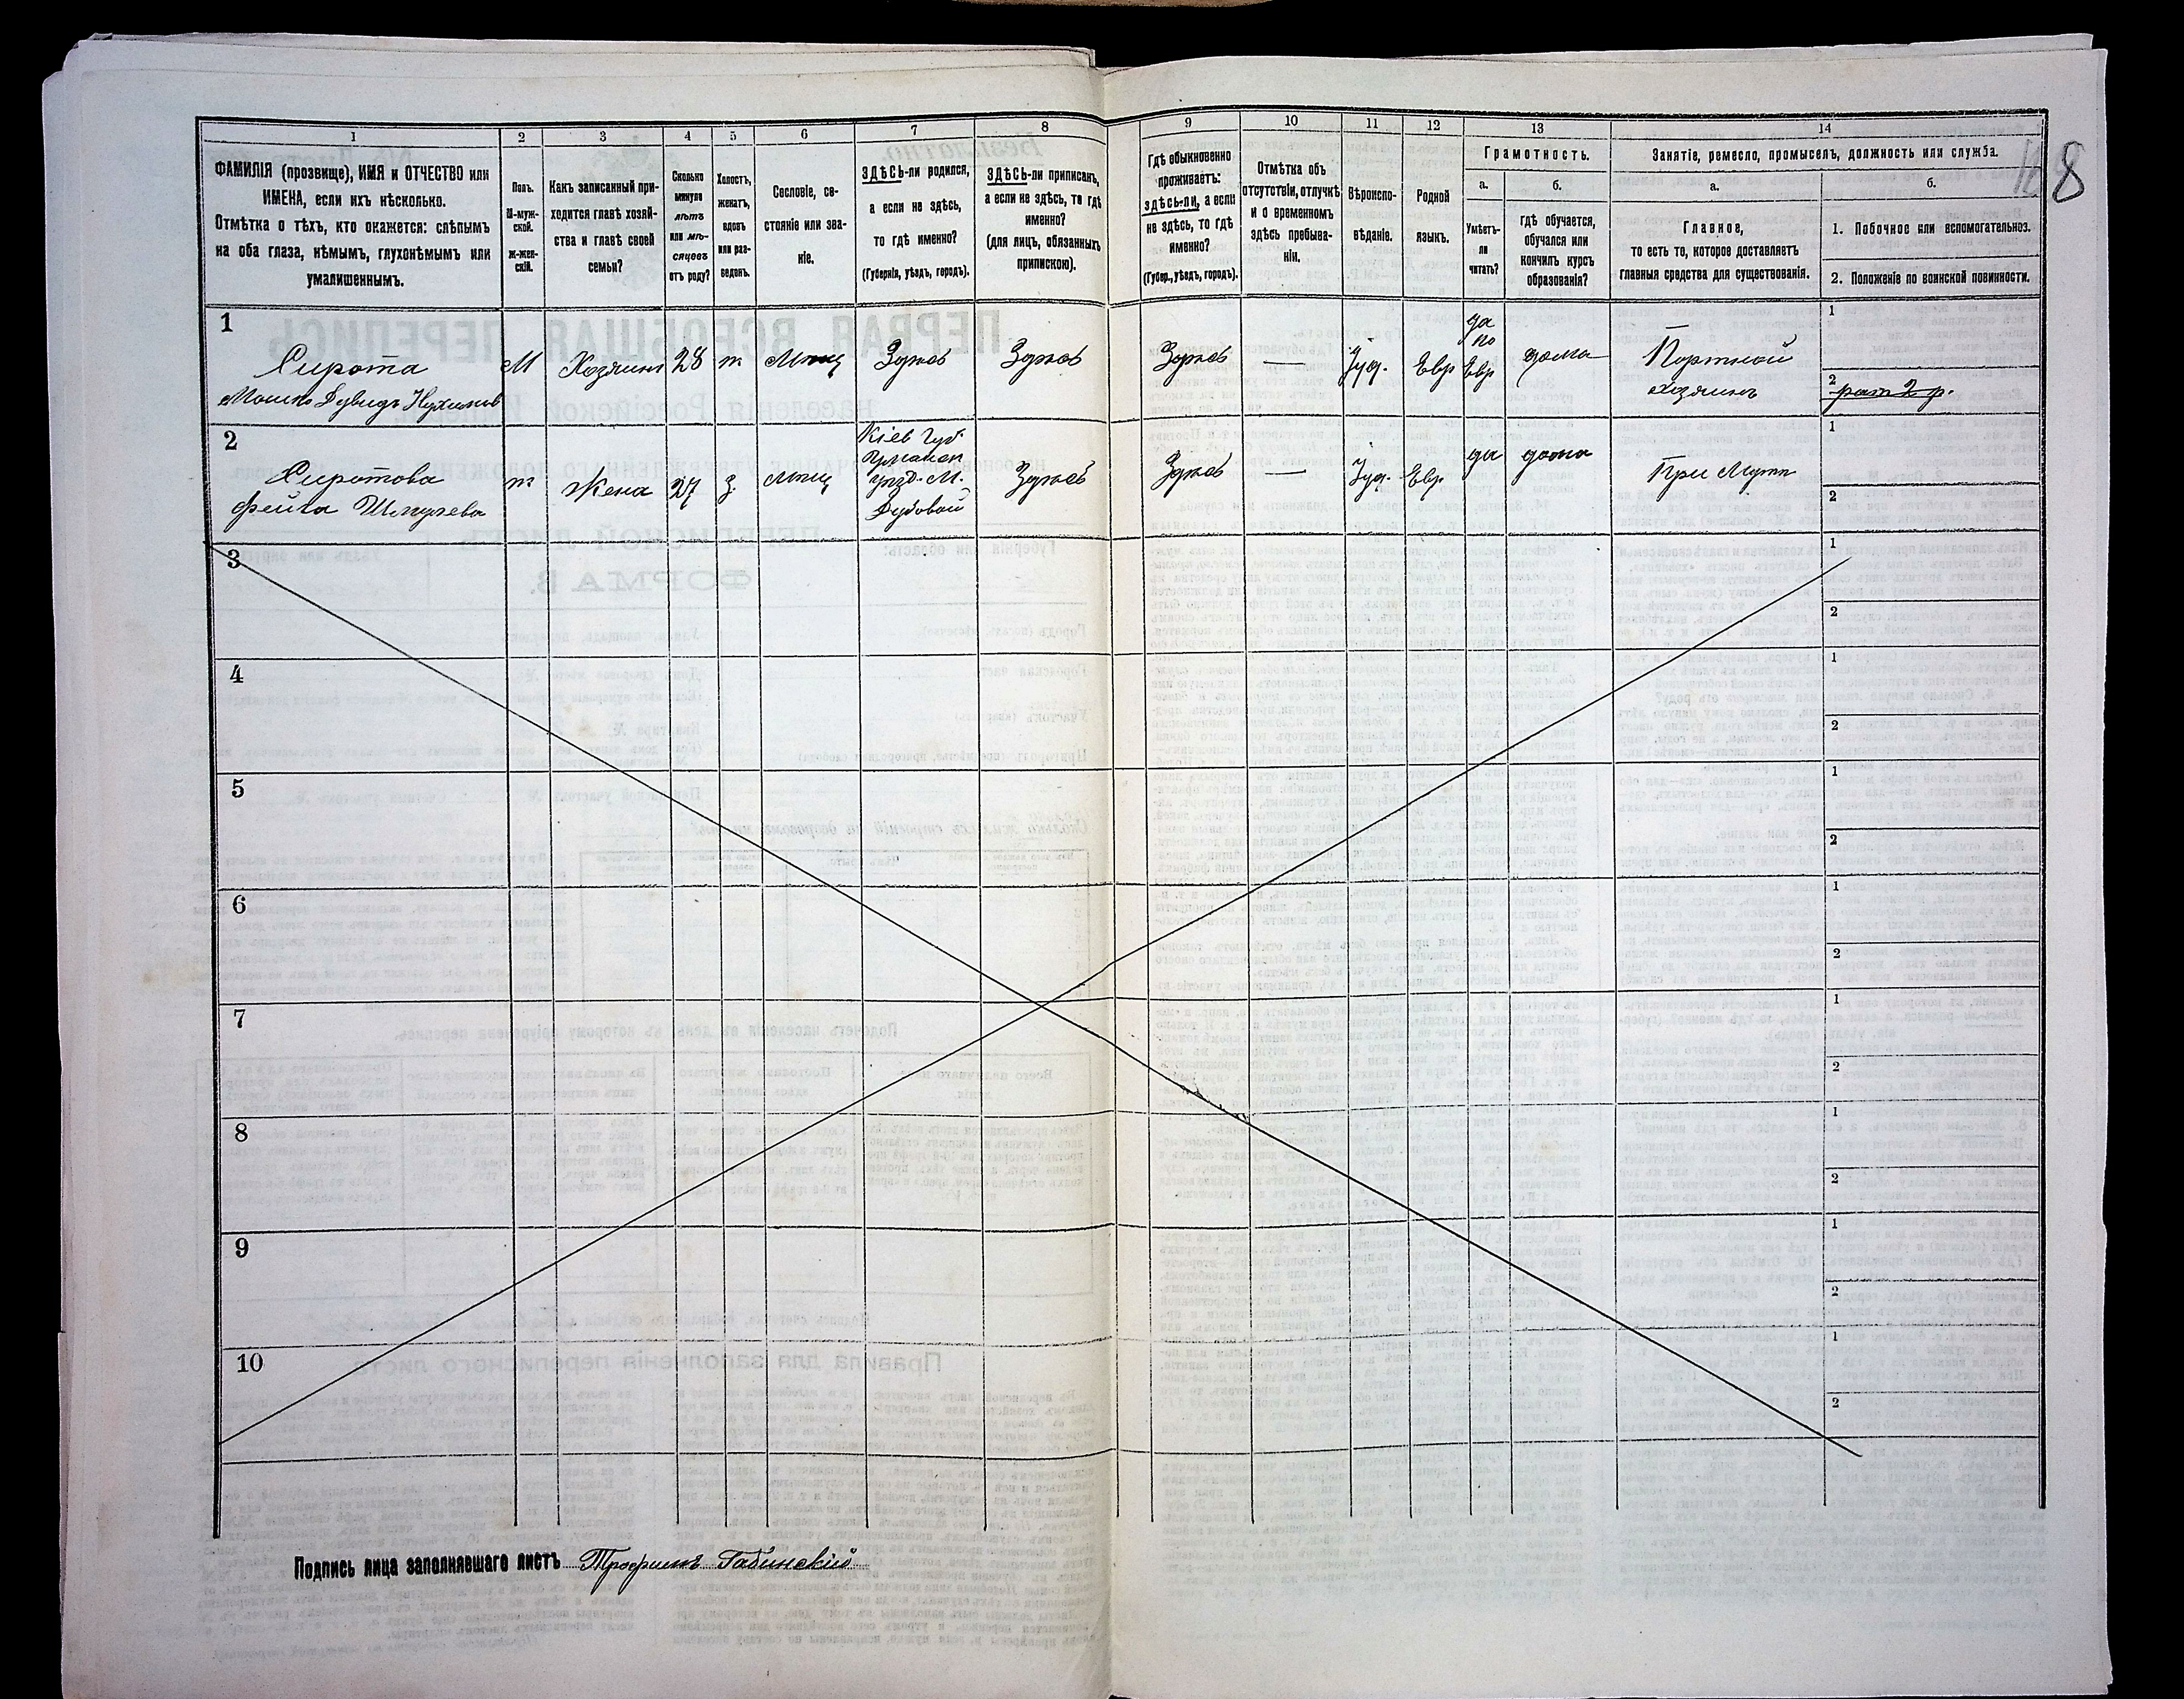 1 2 3 4 5 6 7 8 9 10 11 12 13 14
ФАМИЛІЯ (прозвище), ИМЯ и ОТЧЕСТВО или
ИМЕНА, если ихъ нѣсколько.
Отмѣтка о тѣхъ, кто окажется: слѣпымъ
на оба глаза, нѣмымъ, глухонѣмымъ или
умалишеннымъ.
Полъ.
М-муж-
ской.
Ж-жен-
скій.
Какъ записанный при-
ходится главѣ хозяй-
ства и главѣ своей
семьи?
Сколько
минуло
лѣтъ
или мѣ-
сяцевъ
отъ роду?
Холостъ,
женатъ,
вдовъ
или раз-
веденъ.
Сословіе, со-
стояніе или зва-
ніе.
ЗДѢСЬ-ли родился,
а если не здѣсь,
то гдѣ именно?
(Губернія, уѣздъ, городъ).
ЗДѢСЬ-ли приписанъ,
а если не здѣсь, то гдѣ
именно?
(для лицъ, обязанныхъ
припискою).
Гдѣ обыкновенно
проживаетъ:
здѣсь-ли, а если
не здѣсь, то гдѣ
именно?
(Губер., уѣздъ, городъ).
Отмѣтка объ
отсутствіи, отлучкѣ
и о временномъ
здѣсь пребыва-
ніи.
Вѣроиспо-
вѣданіе.
Родной
языкъ.
Грамотность.
а.
Умѣетъ-
ли
читать?
б.
гдѣ обучается,
обучался или
кончилъ курсъ
образованія?
Занятіе, ремесло, промыселъ, должность или служба.
а.
Главное,
то есть то, которое доставляетъ
главныя средства для существованія.
б.
1. Побочное или вспомогательное.
2. Положеніе по воинской повинности.
8
1
Сирота
Мошко Дувидъ Нухимов
М
Хозяинъ
28
ж
Мѣщ
Здѣсь
Здѣсь
Здѣсь
—
Іуд.
Евр
да
по
Евр
дома
Портной
хозяинъ
1
2
рат 2 р.
2
Сиротова
Фейга Шмулева
ж
Жена
27
з.
мѣщ
Кіев Губ
Уманск
уѣзд. М.
Дубовой
Здѣсь
Здѣсь
—
Іуд.
Евр
да
дома
При Мужѣ
1
2
3
1
2
4
1
2
5
1
2
6
1
2
7
1
2
8
1
2
9
1
2
10
1
2
Подпись лица заполнявшаго листъ Трофимъ Габинскій